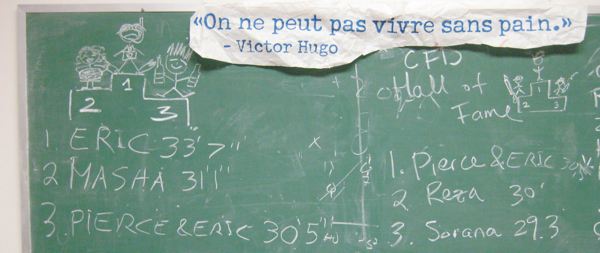 «On ne peut pas vivre sans pain.»
- Victor Hugo
2 1 3
1. ERIC 33'7"
2 MASHA 31'1"
3. PIERCE & ERIC 30'5"
CFD
Hall of
Fame
1. Pierce & ERIC
2 Reza 30'
3. Sorana 29.3